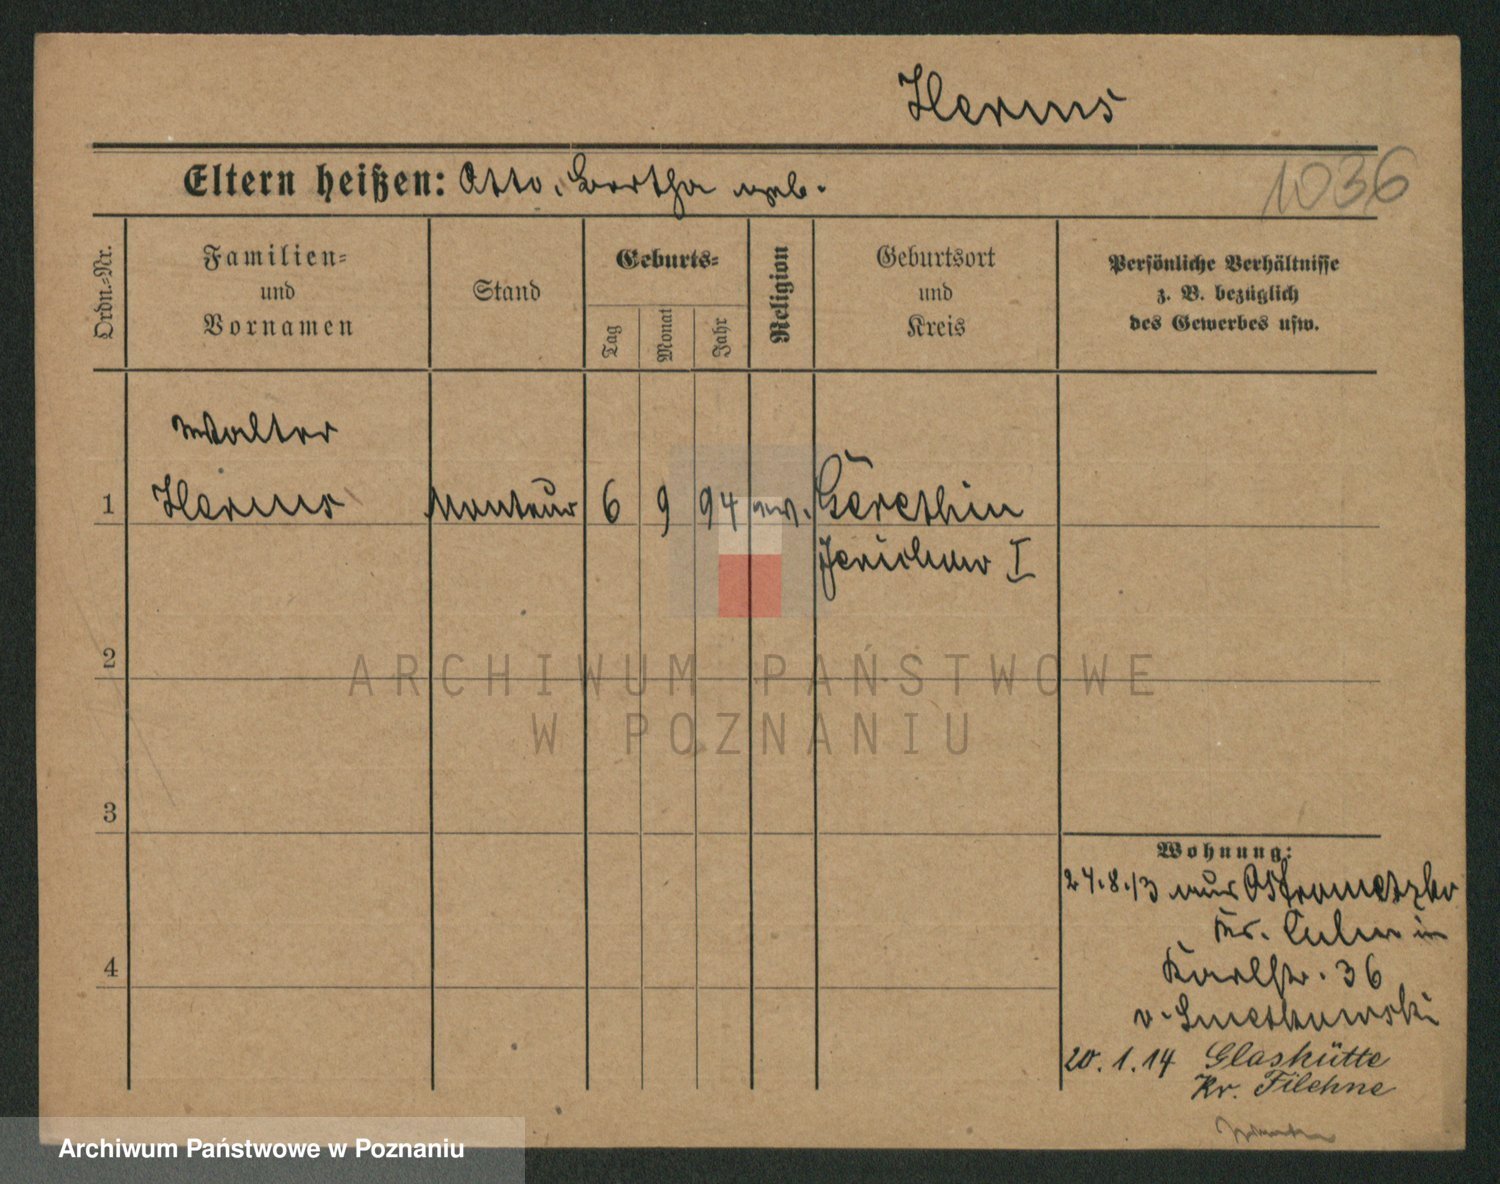 Herms
Eltern heißen: Otto, Bertha geb.
1036
Ordn.-Nr.
Familien-
und
Vornamen
Stand
Geburts-
Tag
Monat
Jahr
Religion
Geburtsort
und
Kreis
Persönliche Verhältnisse
z. B. bezüglich
des Gewerbes usw.
Walter
1 Herms Monteur 6 9 94 ev. Görethin
Jerichow I
2
ARCHIWUM PAŃSTWOWE
W POZNANIU
3
Wohnung:
24.8.13 aus Ostrometzko
Kr. Culm in
4
Karlstr. 36
v. Smetkowski
20.1.14 Glashütte
Kr. Filehne
Archiwum Państwowe w Poznaniu